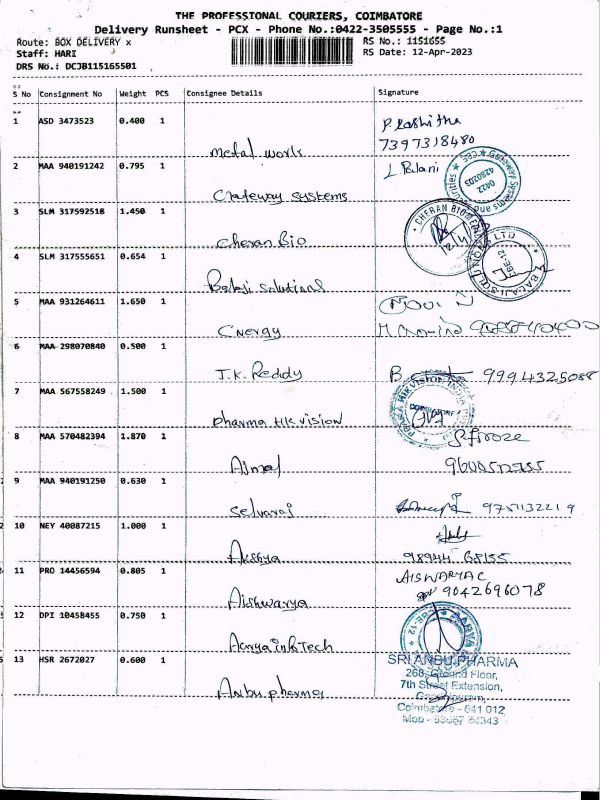 THE PROFESSIONAL COURIERS, COIMBATORE
Delivery Runsheet - PCX - Phone No.:0422-3505555 - Page No.:1
Route: BOX DELIVERY x
RS No.: 1151655
Staff: HARI
RS Date: 12-Apr-2023
DRS No.: DCJB115165501
S No Consignment No Weight PCS Consignee Details Signature
1 ASD 3473523 0.400 1
Prashitha
7397318480
Metal works
2 MAA 940191242 0.795 1
L Palani
Gateway Systems
3 SLM 317592518 1.450 1
CHERAN
Cheran Bio
4 SLM 317555651 0.654 1
Balaji Solutions
5 MAA 931264611 1.650 1
Cnergy
6 MAA 298070840 0.500 1
J.K. Reddy
9994325088
7 MAA 567558249 1.500 1
Dharma Hk vision
8 MAA 570482394 1.870 1
S. firoze
Ajmal
9 MAA 940191250 0.630 1
Selvaraj
9751132219
10 NEY 40087215 1.000 1
Akshya
98944 68155
11 PRO 14456594 0.805 1
AISWARYA C
9042696078
Aishwarya
12 DPI 10458455 0.750 1
13 HSR 2672027 0.600 1
SRI ANBU PHARMA
268, Ground Floor,
7th Street Extension,
Coimbatore - 641 012
Anbu pharma